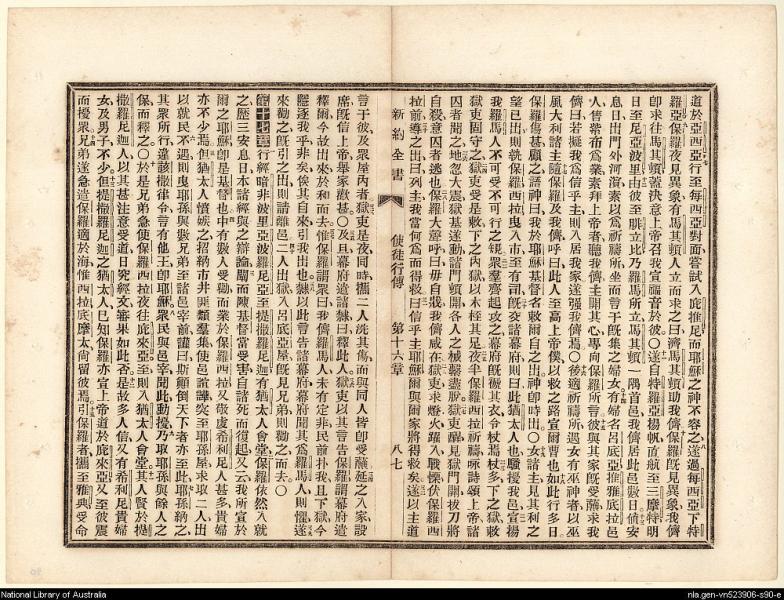 道於亞西亞行至每西亞對面嘗試入庇推尼而耶穌之神不容之遂過每西亞下特
羅亞保羅夜見異象有馬其頓人立而求之曰濟馬其頓助我儕保羅旣見異象我儕
卽求往馬其頓蓋決意上帝召我宣福音於彼○遂自特羅亞揚帆直航至三摩特明
日至尼亞波里由彼至腓立比乃羅馬所立馬其頓一隅首邑我儕居此邑數日値安
息日出門外河濱素以爲祈禱所坐而言于旣集之婦女有婦名呂底亞推雅底拉邑
人售紫布爲業素拜上帝者聽我儕主開其心專向保羅所言彼與其家旣受蘸求我
儕曰若擬我爲信乎主則入居我家遂强我儕焉○後適祈禱所遇女有巫神者以巫
風大利諸主隨保羅及我儕呼曰此人至高上帝僕以救之路宣爾曹也如此行多日
保羅傷甚顧之語神曰我於耶穌基督名敕爾自之出神卽時出○女諸主見其利之
望已出則執保羅西拉曳入市至有司旣交諸幕府則曰此猶太人也騷擾我邑宣揚
我羅馬人不可受不可行之規衆羣齊起攻之幕府旣褫其衣令杖焉杖多下之獄敕
獄吏固守之獄吏受是敕下之内獄以木桎其足夜半保羅西拉祈禱咏詩頌上帝諸
囚者聞之地忽大震獄基遂動諸門頓開各人之械繫盡脫獄吏醒見獄門闢拔刀將
自殺意囚者逃也保羅大聲呼曰毋自戕我儕咸在獄吏求燈火躍入戰慄伏保羅西
拉前導之出曰列主我當何爲而得救曰信乎主耶穌爾與爾家將得救矣遂以主道
新約全書 使徒行傳 第十六章 八七
言于彼及衆屋内者獄吏是夜同時攜二人洗其傷而與同人皆卽受蘸延之入家設
席旣信上帝舉家歡甚○及旦幕府遣諸隸曰釋此人獄吏以其言告保羅謂幕府遣
釋爾今故出來於和而去惟保羅謂衆曰我儕羅馬人未有定非民前扑我且下獄今
隱逐我乎非矣俟其自來引我出也隸以此言告諸幕府幕府聞其爲羅馬人則懼遂
來勸之旣引之出則請離邑二人出獄入呂底亞屋旣見兄弟則勸之而去○
第十七章行經暗非波里亞破羅尼亞至提撒羅尼迦有猶太人會堂保羅依然入就
之歷三安息日本諸經與之辯論闡而陳基督當受害自諸死而復起又云我所宣於
爾之耶穌卽是基督也中有數人受勸而業於保羅西拉又敬虔希利尼人甚多貴婦
亦不少焉但猶太人憤嫉之招納市井匪類羣集使邑諠譁突至耶孫屋求取二人出
以就民不遇則曳耶孫與數兄弟至諸邑宰前讙曰斯顚倒天下者亦至此耶孫納之
其衆所行違該撒律令言有他王卽耶穌衆民與邑宰聞此動擾乃取耶孫與餘人之
保而釋之○於是兄弟急使保羅西拉夜往庇來亞至則入猶太人會堂其人賢於提
撒羅尼迦人以其甚注意受道日究經文審果如此否是故多人信又有希利尼貴婦
女及男子不少但提撒羅尼迦之猶太人已知保羅亦宣上帝道於庇來亞又至彼震
而擾衆兄弟遂急遣保羅適於海惟西拉底摩太尙留彼焉引保羅者攜至雅典受命
National Library of Australia
nla.gen-vn523906-s90-e